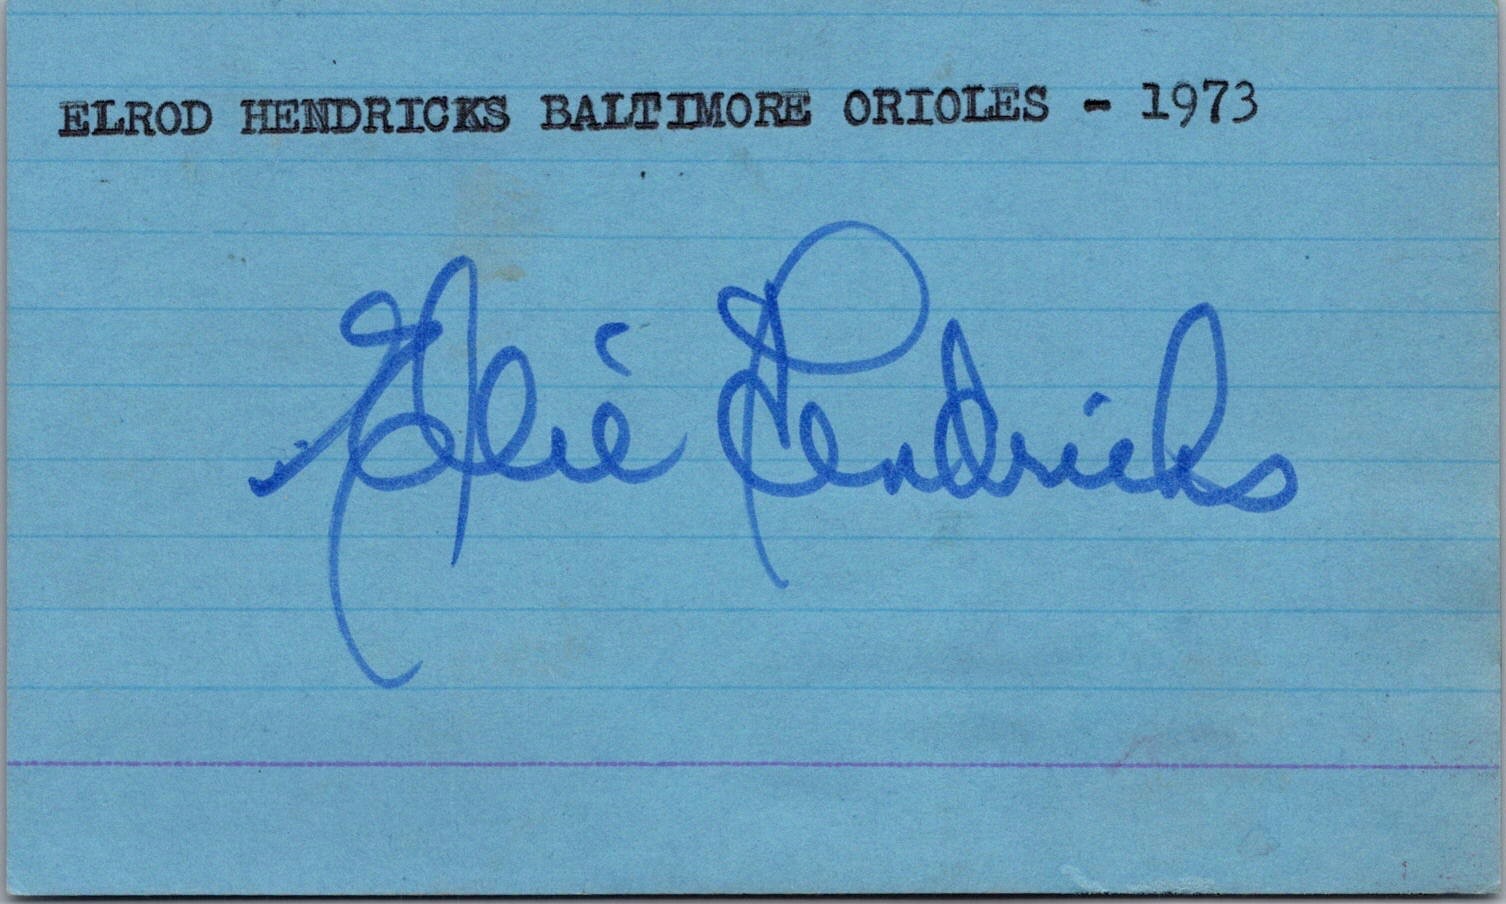 ELROD HENDRICKS BALTIMORE ORIOLES - 1973
Elie Hendricks